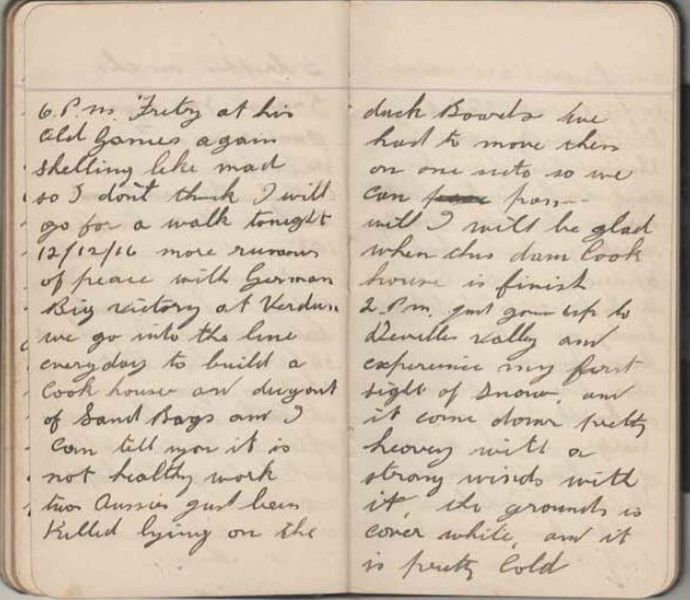 6. P.m. Fritz at his
Old Games again
shelling like mad
so I don't think I will
go for a walk tonight
12/12/16 more rumours
of peace with German
Big victory at Verdun
we go into the line
everyday to build a
Cook house an dugout
of Sand Bags an I
Can tell you it is
not healthy work
two Aussies just been
Killed lying on the
duck Boards we
had to move them
on one side so we
can pass
will I will be glad
when this dam Cook
house is finish
2. P.m. just gone up to
Deville valley and
experience my first
sight of snow, and
it come down pretty
heavey with a
strong winds with
it, the grounds is
cover white, and it
is pretty Cold